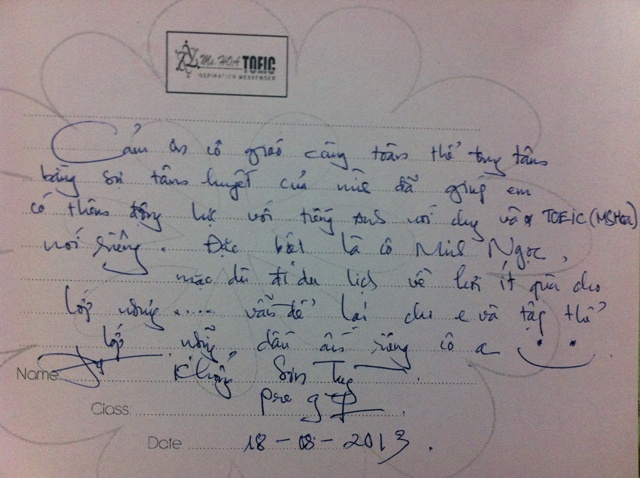 Ms. HOA TOEIC
INSPIRATION MESSENGER
Cảm ơn cô giáo cùng toàn thể trung tâm
bằng sự tâm huyết của mình đã giúp em
có thêm động lực với tiếng Anh nói chung và TOEIC (MSHoa)
nói riêng. Đặc biệt là cô Minh Ngọc,
mặc dù đi du lịch về hơi ít quà cho
lớp nhưng..... vẫn để lại cho e và tập thể
lớp những dấu ấn riêng cô ạ
Name Khổng Sơn
Class pre
Date 18-08-2013.